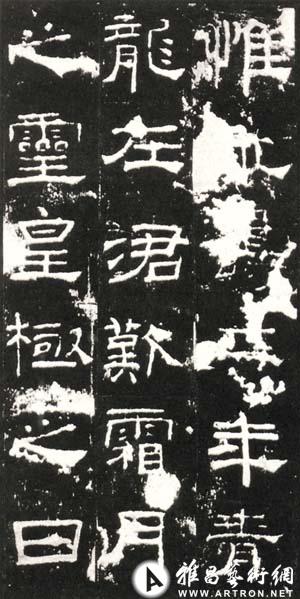 惟年青
龍在涒歎霜月
之靈皇極之日
雅昌藝術網
WWW.ARTRON.NET